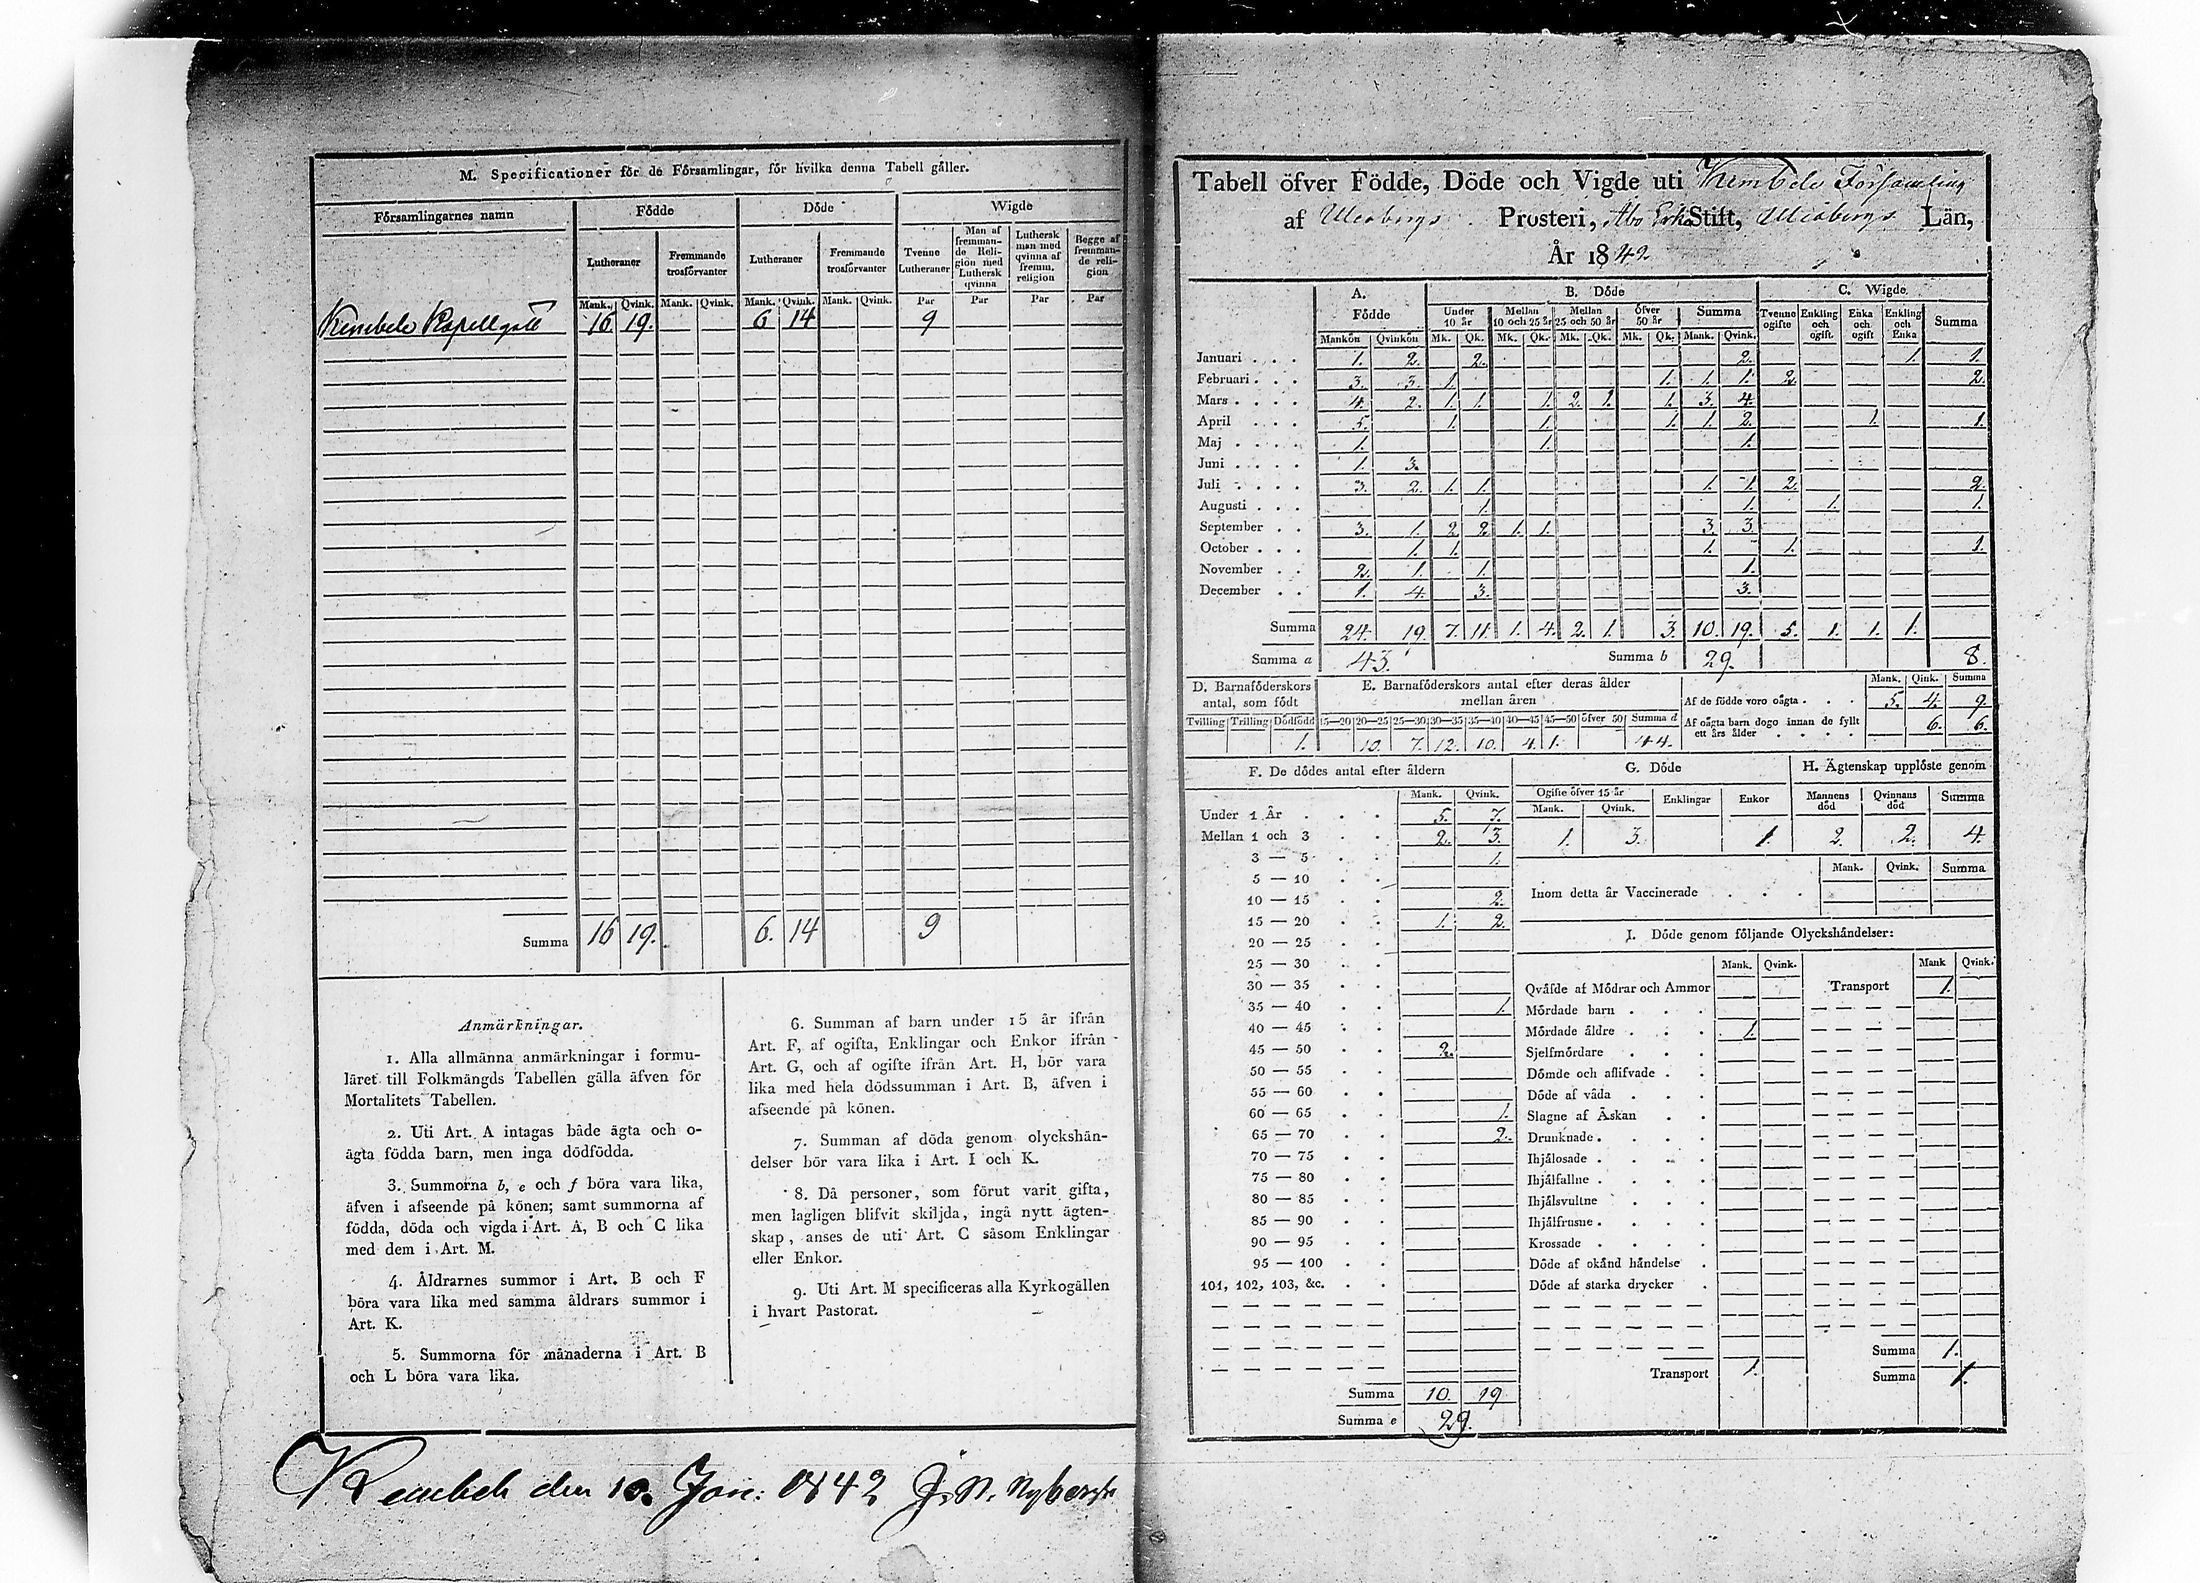 M. Specificationer för de Församlingar, för hvilka denna Tabell gäller.
Församlingarnes namn Födde Döde Wigde
Lutheraner Fremmande trosförvanter Lutheraner Fremmande trosförvanter Tvenne Lutheraner Man af fremmande Religion med Luthersk qvinna Luthersk man med qvinna af fremm. religion Begge af fremmande religion
Mank. Qvink. Mank. Qvink. Mank. Qvink. Mank. Qvink. Par Par Par Par
Kembele Kapellgäll 16 19. 6 14 9
Summa 16 19. 6. 14 9
Anmärkningar.
1. Alla allmänna anmärkningar i formu-
läret till Folkmängds Tabellen gälla äfven för
Mortalitets Tabellen.
2. Uti Art. A intagas både ägta och o-
ägta födda barn, men inga dödfödda.
3. Summorna b, e och f böra vara lika,
äfven i afseende på könen; samt summorna af
födda, döda och vigda i Art. A, B och C lika
med dem i Art. M.
4. Åldrarnes summor i Art. B och F
böra vara lika med samma åldrars summor i
Art. K.
5. Summorna för månaderna i Art. B
och L böra vara lika.
6. Summan af barn under 15 år ifrån
Art. F, af ogifta, Enklingar och Enkor ifrån
Art. G, och af ogifte ifrån Art. H, bör vara
lika med hela dödssumman i Art. B, äfven i
afseende på könen.
7. Summan af döda genom olyckshän-
delser bör vara lika i Art. I och K.
8. Då personer, som förut varit gifta,
men lagligen blifvit skiljda, ingå nytt ägten-
skap, anses de uti Art. C såsom Enklingar
eller Enkor.
9. Uti Art. M specificeras alla Kyrkogällen
i hvart Pastorat.
Kembele den 10. Jan: 1842 J. N. Nyberg
Tabell öfver Födde, Döde och Vigde uti Kembele Församling
af Uleåborgs Prosteri, Åbo Erke Stift, Uleåborgs Län,
År 1842
A. Födde B. Döde C. Wigde
Under 10 år Mellan 10 och 25 år Mellan 25 och 50 år Öfver 50 år Summa Tvenne ogifte Enkling och ogift. Enka och ogift Enkling och Enka Summa
Mankön Qvinkön Mk. Qk. Mk. Qk. Mk. Qk. Mk. Qk. Mank. Qvink.
Januari . . . 1. 2. 2. 2. 1. 1.
Februari . . . 3. 3. 1. 1. 1. 1. 2. 2.
Mars . . . . 4. 2. 1. 1. 1. 2. 1. 1. 3. 4.
April . . . 5. 1. 1. 1. 1. 2. 1. 1.
Maj . . . . 1. 1. 1.
Juni . . . . 1. 3.
Juli . . . . 3. 2. 1. 1. 1. 1. 2. 2.
Augusti . . . 1. 1. 1. 1.
September . . 3. 1. 2 2. 1. 1. 3. 3
October . . . 1. 1. 1. 1. 1.
November . . 2. 1. 1. 1.
December . . 1. 4. 3. 3.
Summa 24. 19. 7. 11. 1. 4. 2. 1. 3. 10. 19. 5. 1. 1. 1.
Summa a 43. Summa b 29. 8.
D. Barnaföderskors antal, som födt
Tvilling Trilling Dödfödd
1.
E. Barnaföderskors antal efter deras ålder mellan åren
15—20 20—25 25—30 30—35 35—40 40—45 45—50 öfver 50 Summa d
10. 7. 12. 10. 4. 1. 44.
Mank. Qink. Summa
Af de födde voro oägta . . . 5. 4. 9.
Af oägta barn dogo innan de fyllt
ett års ålder . . . . 6. 6.
F. De dödes antal efter åldern
Mank. Qvink.
Under 1 År . . . 5. 7.
Mellan 1 och 3 . . 2. 3.
3 — 5 . . 1.
5 — 10 . .
10 — 15 . . 2.
15 — 20 . . 1. 2.
20 — 25 . .
25 — 30 . .
30 — 35 . .
35 — 40 . . 1.
40 — 45 . .
45 — 50 . . 2.
50 — 55 . .
55 — 60 . .
60 — 65 . . 1.
65 — 70 . . 2.
70 — 75 . .
75 — 80 . .
80 — 85 . .
85 — 90 . .
90 — 95 . .
95 — 100 . .
101, 102, 103, &c. . .
Summa 10. 19
Summa e 29.
G. Döde
Ogifte öfver 15 år Enklingar Enkor
Mank. Qvink.
1. 3. 1.
H. Ägtenskap upplöste genom
Mannens död Qvinnans död Summa
2. 2. 4.
Mank. Qvink. Summa
Inom detta år Vaccinerade . . .
I. Döde genom följande Olyckshändelser:
Mank. Qvink. Mank Qvink.
Qväfde af Mödrar och Ammor Transport 1.
Mördade barn . . .
Mördade äldre . . . 1.
Sjelfmördare . . .
Dömde och aflifvade . .
Döde af våda . . .
Slagne af Åskan . .
Drunknade . . . .
Ihjälosade . . . .
Ihjälfallne . . . .
Ihjälsvultne . . .
Ihjälfrusne . . . .
Krossade . . . .
Döde af okänd händelse .
Döde af starka drycker .
Summa 1.
Transport 1. Summa 1.